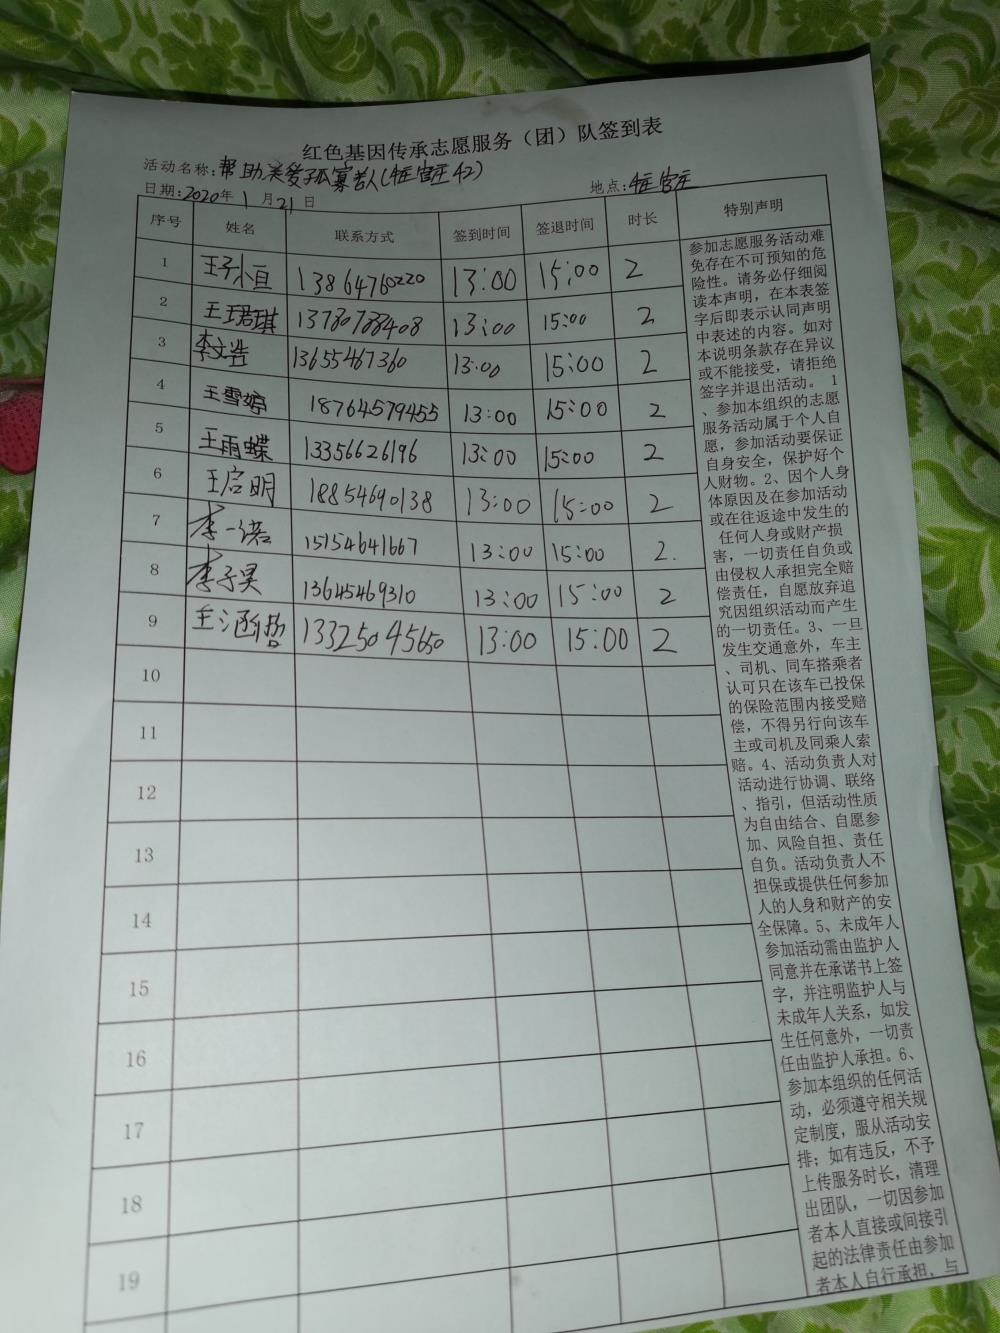 红色基因传承志愿服务（团）队签到表
活动名称：帮助关爱孤寡老人
日期：2020年1月21日 地点：
序号 姓名 联系方式 签到时间 签退时间 时长 特别声明
1 王子恒 13864760220 13:00 15:00 2
2 王珺琪 13780788408 13:00 15:00 2
3 李文浩 13655467360 13:00 15:00 2
4 王雪婷 18764579455 13:00 15:00 2
5 王雨蝶 13356626196 13:00 15:00 2
6 王启明 18854690138 13:00 15:00 2
7 李一诺 15154641667 13:00 15:00 2.
8 李子昊 13645469310 13:00 15:00 2
9 王涵哲 13325045650 13:00 15:00 2
10
11
12
13
14
15
16
17
18
19
参加志愿服务活动难
免存在不可预知的危
险性。请务必仔细阅
读本声明，在本表签
字后即表示认同声明
中表述的内容。如对
本说明条款存在异议
或不能接受，请拒绝
签字并退出活动。 1
、参加本组织的志愿
服务活动属于个人自
愿，参加活动要保证
自身安全，保护好个
人财物。2、因个人身
体原因及在参加活动
或在往返途中发生的
任何人身或财产损
害，一切责任自负或
由侵权人承担完全赔
偿责任，自愿放弃追
究因组织活动而产生
的一切责任。3、一旦
发生交通意外，车主
、司机、同车搭乘者
认可只在该车已投保
的保险范围内接受赔
偿，不得另行向该车
主或司机及同乘人索
赔。4、活动负责人对
活动进行协调、联络
、指引，但活动性质
为自由结合、自愿参
加、风险自担、责任
自负。活动负责人不
担保或提供任何参加
人的人身和财产的安
全保障。5、未成年人
参加活动需由监护人
同意并在承诺书上签
字，并注明监护人与
未成年人关系，如发
生任何意外，一切责
任由监护人承担。6、
参加本组织的任何活
动，必须遵守相关规
定制度，服从活动安
排；如有违反，不予
上传服务时长，清理
出团队，一切因参加
者本人直接或间接引
起的法律责任由参加
者本人自行承担，与